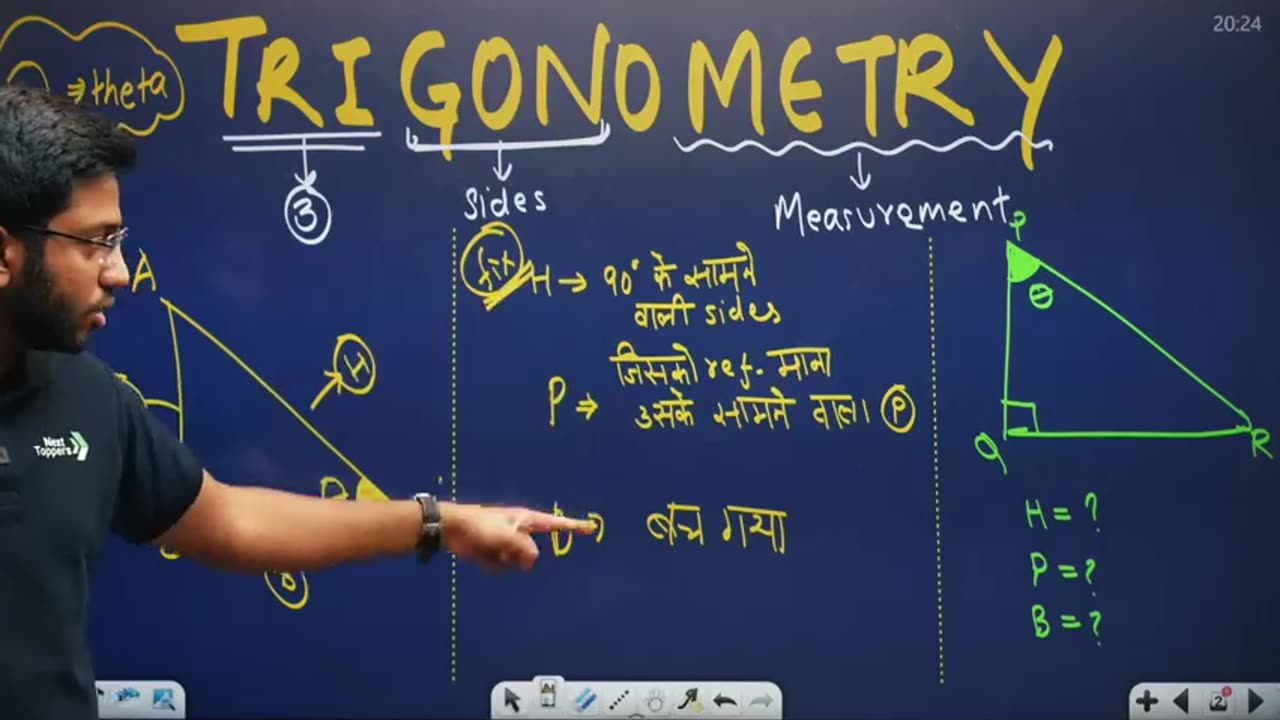 20:24
⇒ theta
TRIGONOMETRY
3
Sides
Measurement
fix H → 90° के सामने
वाली sides
जिसको ref. माना
P ⇒ उसके सामने वाला P
बच गया
A
H
B
Next
Toppers
P
θ
Q
R
H = ?
P = ?
B = ?
2